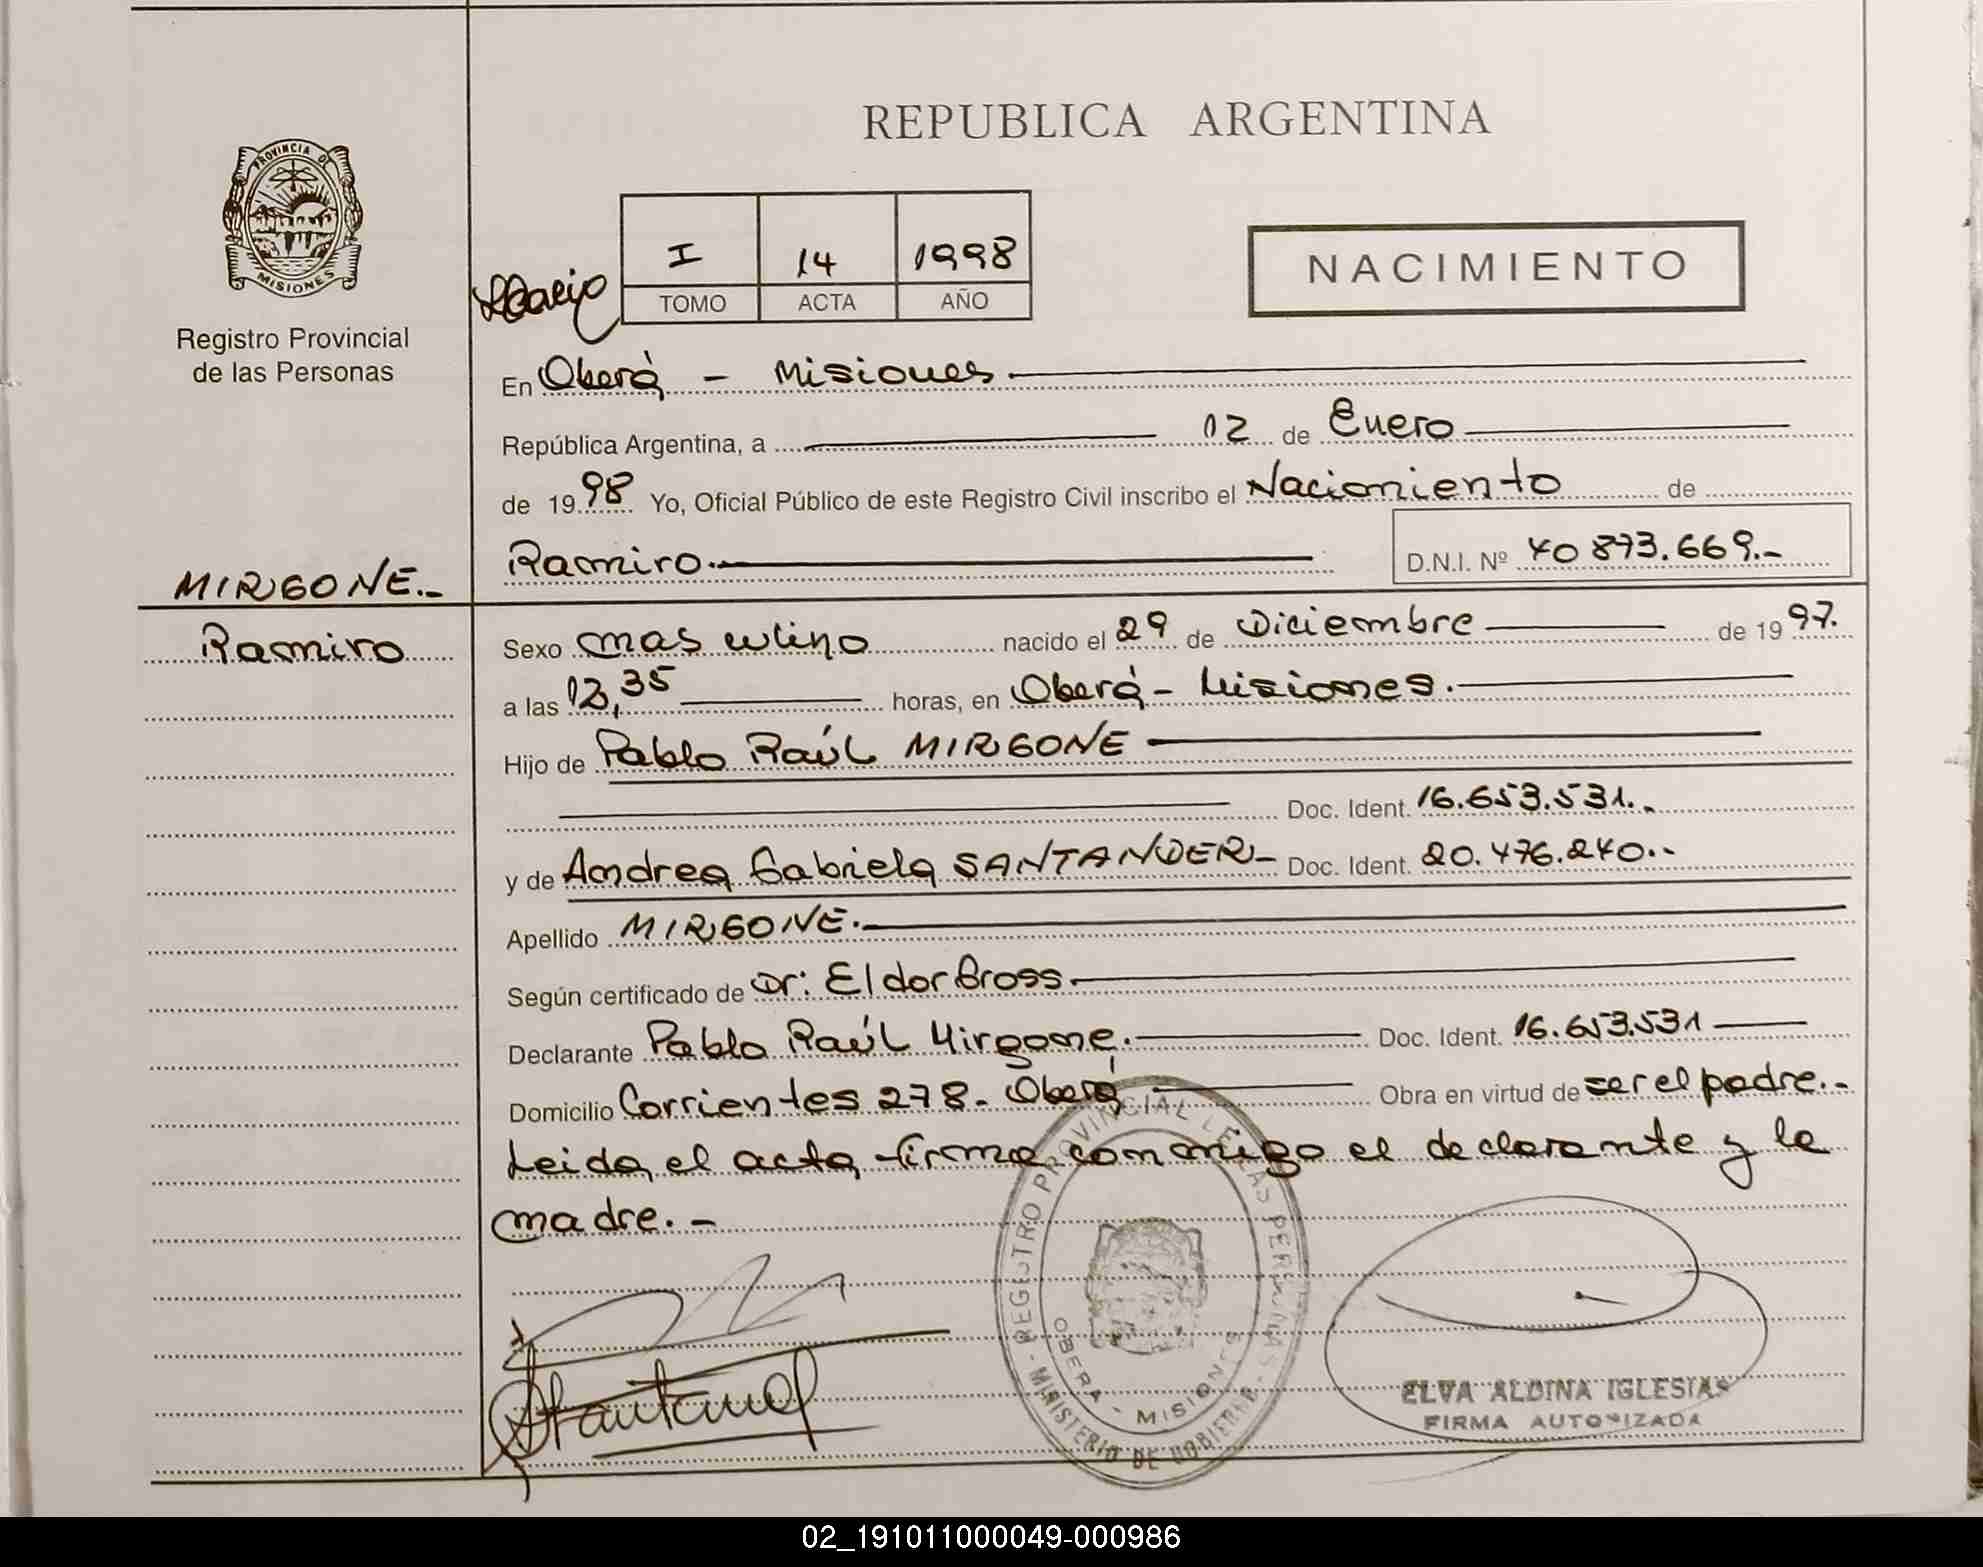 REPUBLICA ARGENTINA
PROVINCIA DE
MISIONES
Registro Provincial
de las Personas
I 14 1998
TOMO ACTA AÑO
NACIMIENTO
En Oberá - Misiones
República Argentina, a 02 de Enero
de 1998 Yo, Oficial Público de este Registro Civil inscribo el Nacimiento de
Ramiro. D.N.I. Nº 40873.669.-
MIRGONE.-
Ramiro
Sexo masculino nacido el 29 de Diciembre de 1997.
a las 12,35 horas, en Oberá - Misiones.
Hijo de Pablo Raúl MIRGONE
Doc. Ident. 16.653.531.-
y de Andrea Gabriela SANTANDER- Doc. Ident. 20.476.240.-
Apellido MIRGONE.
Según certificado de Dr: Eldor Gross.
Declarante Pablo Raúl Mirgone. Doc. Ident. 16.653.531
Domicilio Corrientes 278. Oberá Obra en virtud de ser el padre.-
Leida el acta firma conmigo el declarante y la
madre.-
REGISTRO PROVINCIAL DE LAS PERSONAS
MINISTERIO DE GOBIERNO
OBERA - MISIONES
ELVA ALDINA IGLESIAS
FIRMA AUTORIZADA
02_191011000049-000986